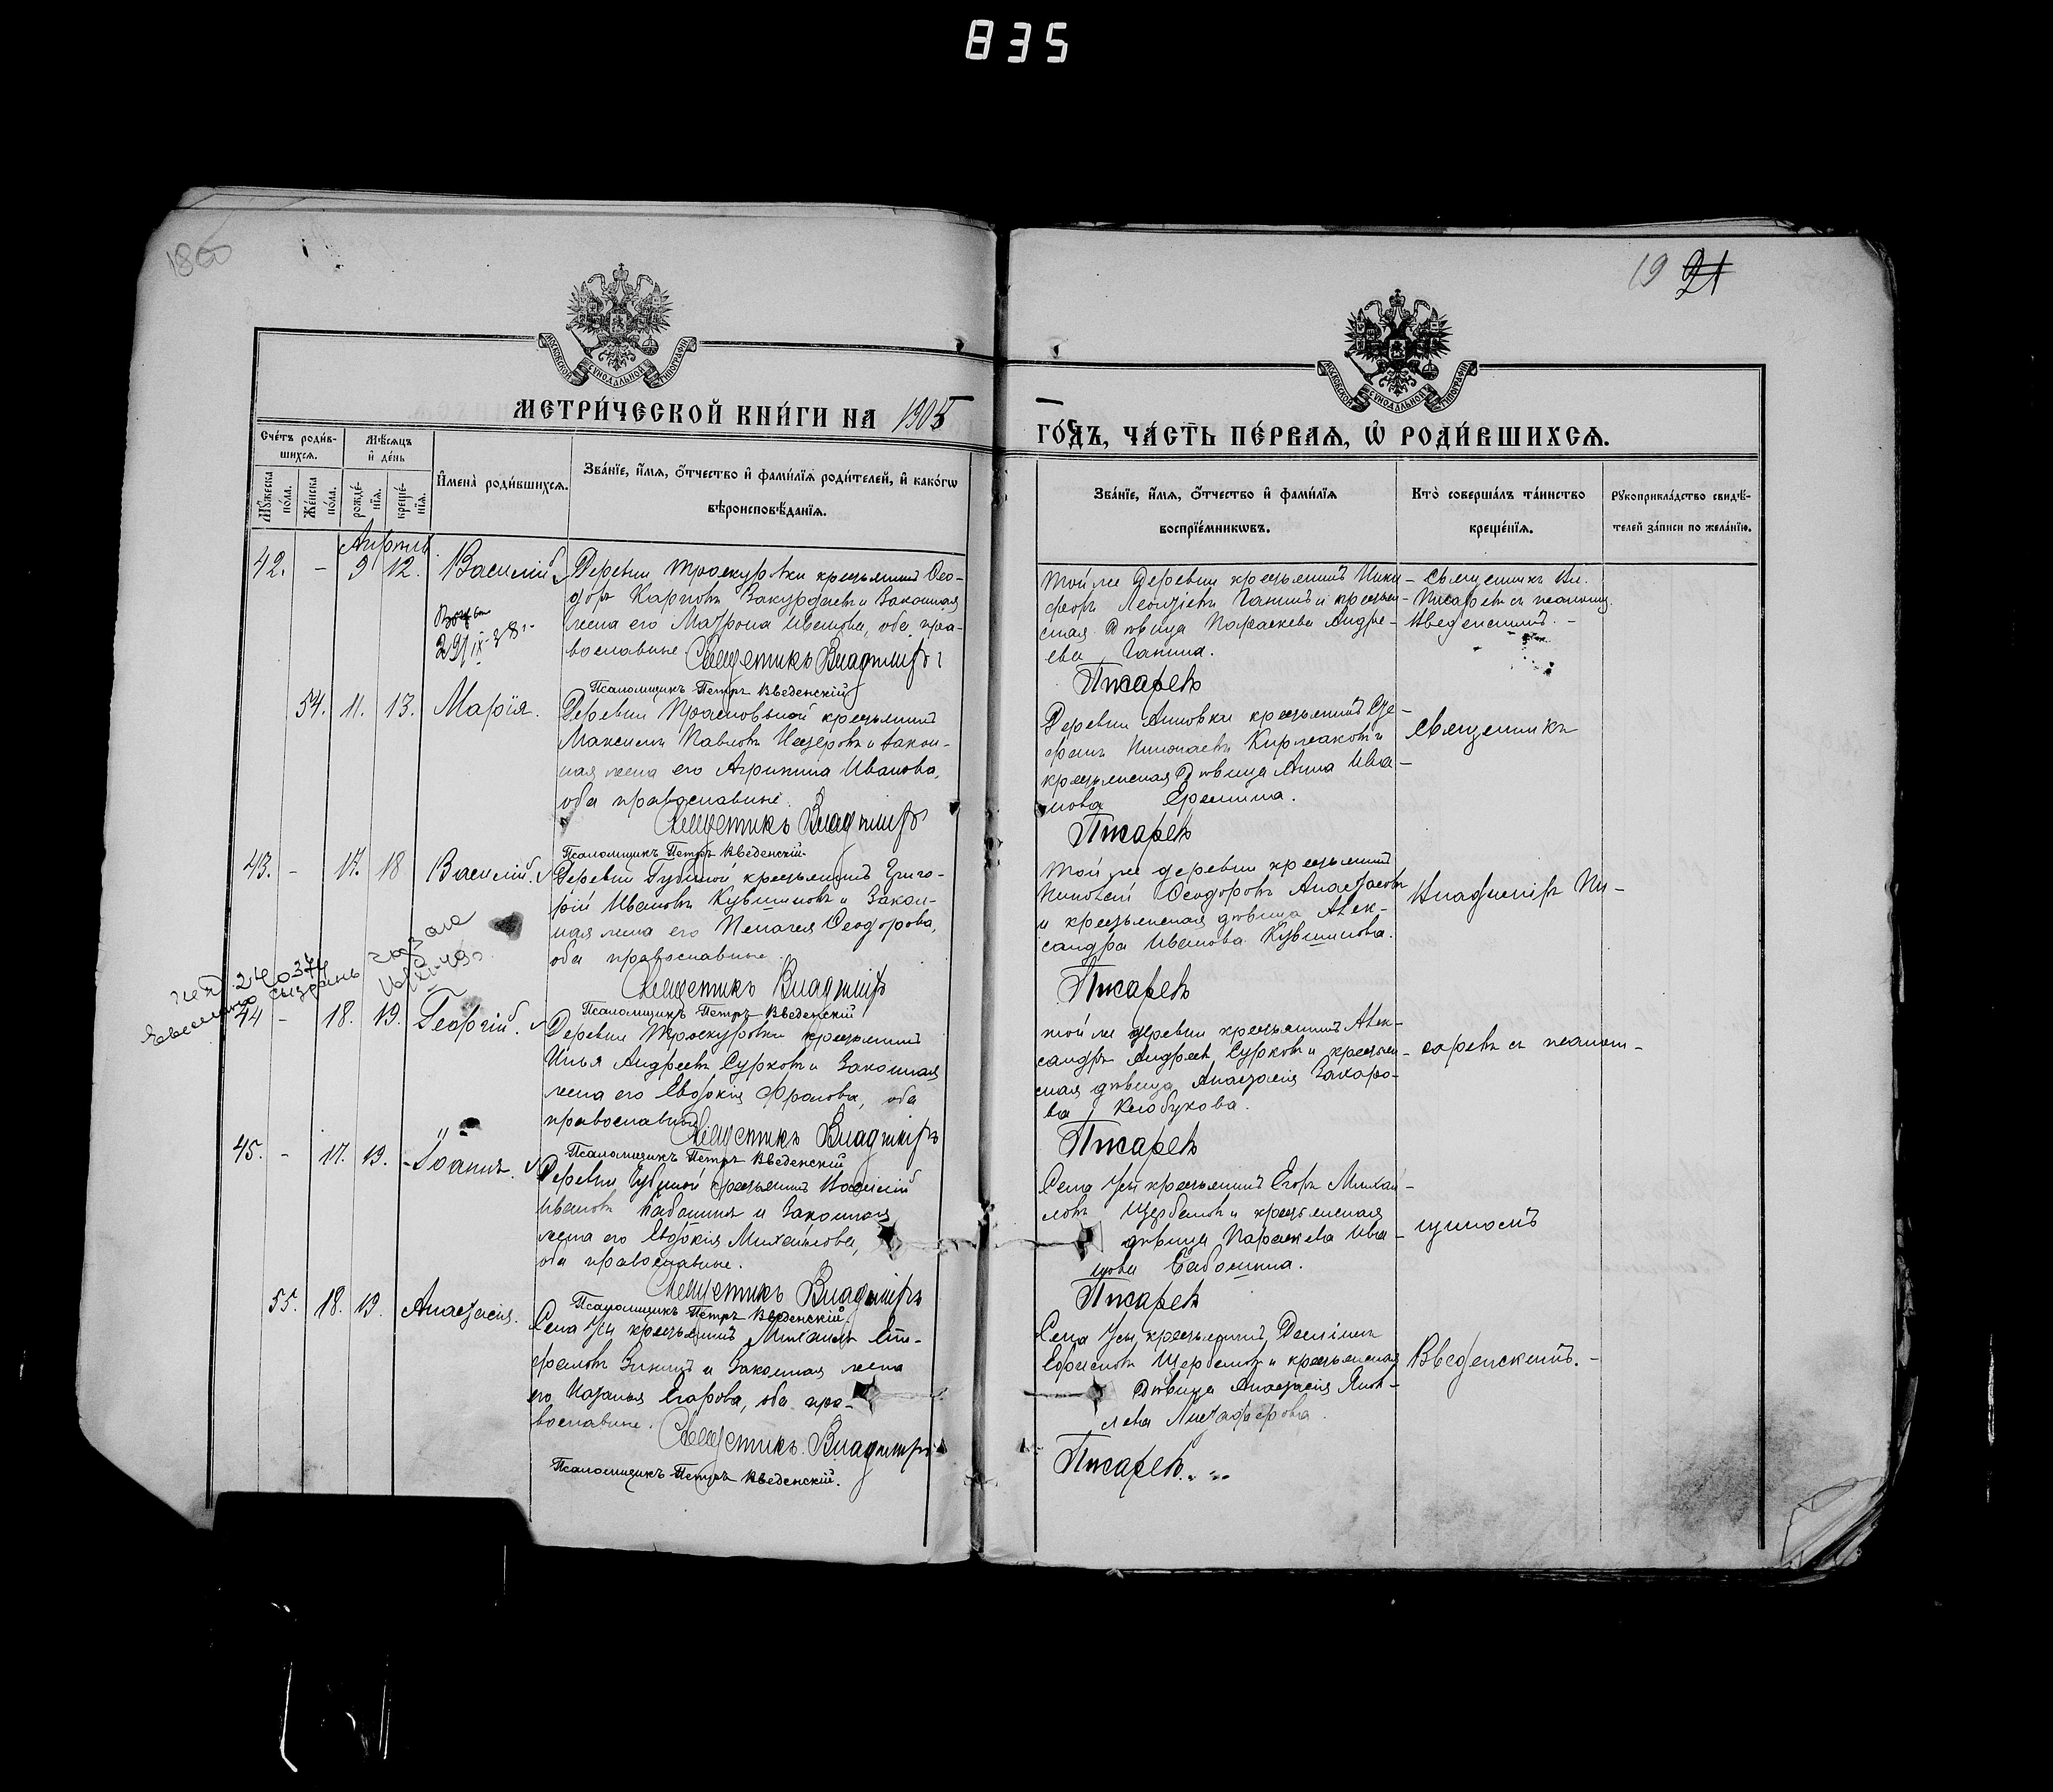 835
1905
19 21
МОСКОВСКОЙ СУНОДАЛЬНОЙ ТИПОГРАФІИ
МОСКОВСКОЙ СУНОДАЛЬНОЙ ТИПОГРАФІИ
МЕТРИ́ЧЕСКОЙ КНИ́ГИ НА 1905
ГО́ДЪ, ЧА́СТЬ ПЕ́РВАѦ, Ѡ҆ РОДИ́ВШИХСѦ.
Сче́тъ роди́в-
шихсѧ.
Мꙋ́жеска
по́ла.
Же́нска
по́ла.
Мѣ́сѧцъ
и҆ де́нь
рожде́-
нїѧ.
креще́-
нїѧ.
И҆мена̀ роди́вшихсѧ.
Зва́нїе, и҆́мѧ, ѻ҆́тчество и҆ фами́лїѧ роди́телей, и҆ како́гѡ
вѣроисповѣ́данїѧ.
Зва́нїе, и҆́мѧ, ѻ҆́тчество и҆ фами́лїѧ
воспрїе́мникѡвъ.
Кто̀ соверша́лъ та́инство
креще́нїѧ.
Рꙋкоприкла́дство свидѣ́-
телей за́писи по жела́нїю.
Апрѣль.
42. - 9 12. Василій
Деревни Проскуровки крестьянинъ Ѳео-
доръ Карповъ Закурдаевъ и законная
жена его Матрона Иванова, оба пра-
вославные. Священникъ Владиміръ
Псаломщикъ Петръ Введенскій
Той же деревни крестьянинъ Ники-
форъ Леонтіевъ Ганинъ и крестьян-
ская дѣвица Параскева Андре-
ева Ганина.
Писаревъ
Священникъ Вл.
Писаревъ съ псаломщ.
Введенскимъ. -
54. 11. 13. Марія.
Максимъ Павловъ и закон-
ная жена его Агрипина Иванова,
оба православные.
Священникъ Владиміръ
Псаломщикъ Петръ Введенскій
Деревни Анновки крестьянинъ Сте-
фанъ Николаевъ Киржаковъ и
крестьянская дѣвица Анна Ива-
нова Еремина.
Писаревъ
Священникъ
43. - 17. 18 Василій.
Деревни Губиной крестьянинъ Григо-
рій Ивановъ Кувшиновъ и закон-
ная жена его Пелагея Ѳеодорова,
оба православные.
Священникъ Владиміръ
Псаломщикъ Петръ Введенскій
Той же деревни крестьянинъ
Ѳеодоровъ
и крестьянская дѣвица Алек-
сандра Иванова Кувшинова.
Писаревъ
Владиміръ Пи-
44 - 18. 19. Георгій.
Деревни Проскуровки крестьянинъ
Илья Андреевъ Сурковъ и законная
жена его Евдокія Фролова, оба
православные. Священникъ Владиміръ
Псаломщикъ Петръ Введенскій
той же деревни крестьянинъ Алек-
сандръ Андреевъ Сурковъ и крестьян-
ская дѣвица Анастасія Захаро-
ва Клобукова.
Писаревъ
саревъ съ псалом-
45. - 17. 19. Іоаннъ.
Деревни Губиной крестьянинъ Василій
Ивановъ Бабошинъ и законная
жена его Евдокія Михайлова,
оба православные.
Священникъ Владиміръ
Псаломщикъ Петръ Введенскій.
Села Усы крестьянинъ Егоръ Михай-
ловъ Щербаковъ и крестьянская
дѣвица Параскева Ива-
нова Бабошина.
Писаревъ
щикомъ
55. 18. 19. Анастасія.
Села Усы крестьянинъ Михаилъ Сте-
фановъ Зининъ и законная жена
его Наталья Егорова, оба пра-
вославные. Священникъ Владиміръ
Псаломщикъ Петръ Введенскій.
Села Усы, крестьянинъ Даніилъ
Щербаковъ и крестьянская
дѣвица Анастасія Яков-
лева
Писаревъ
Введенскимъ. -